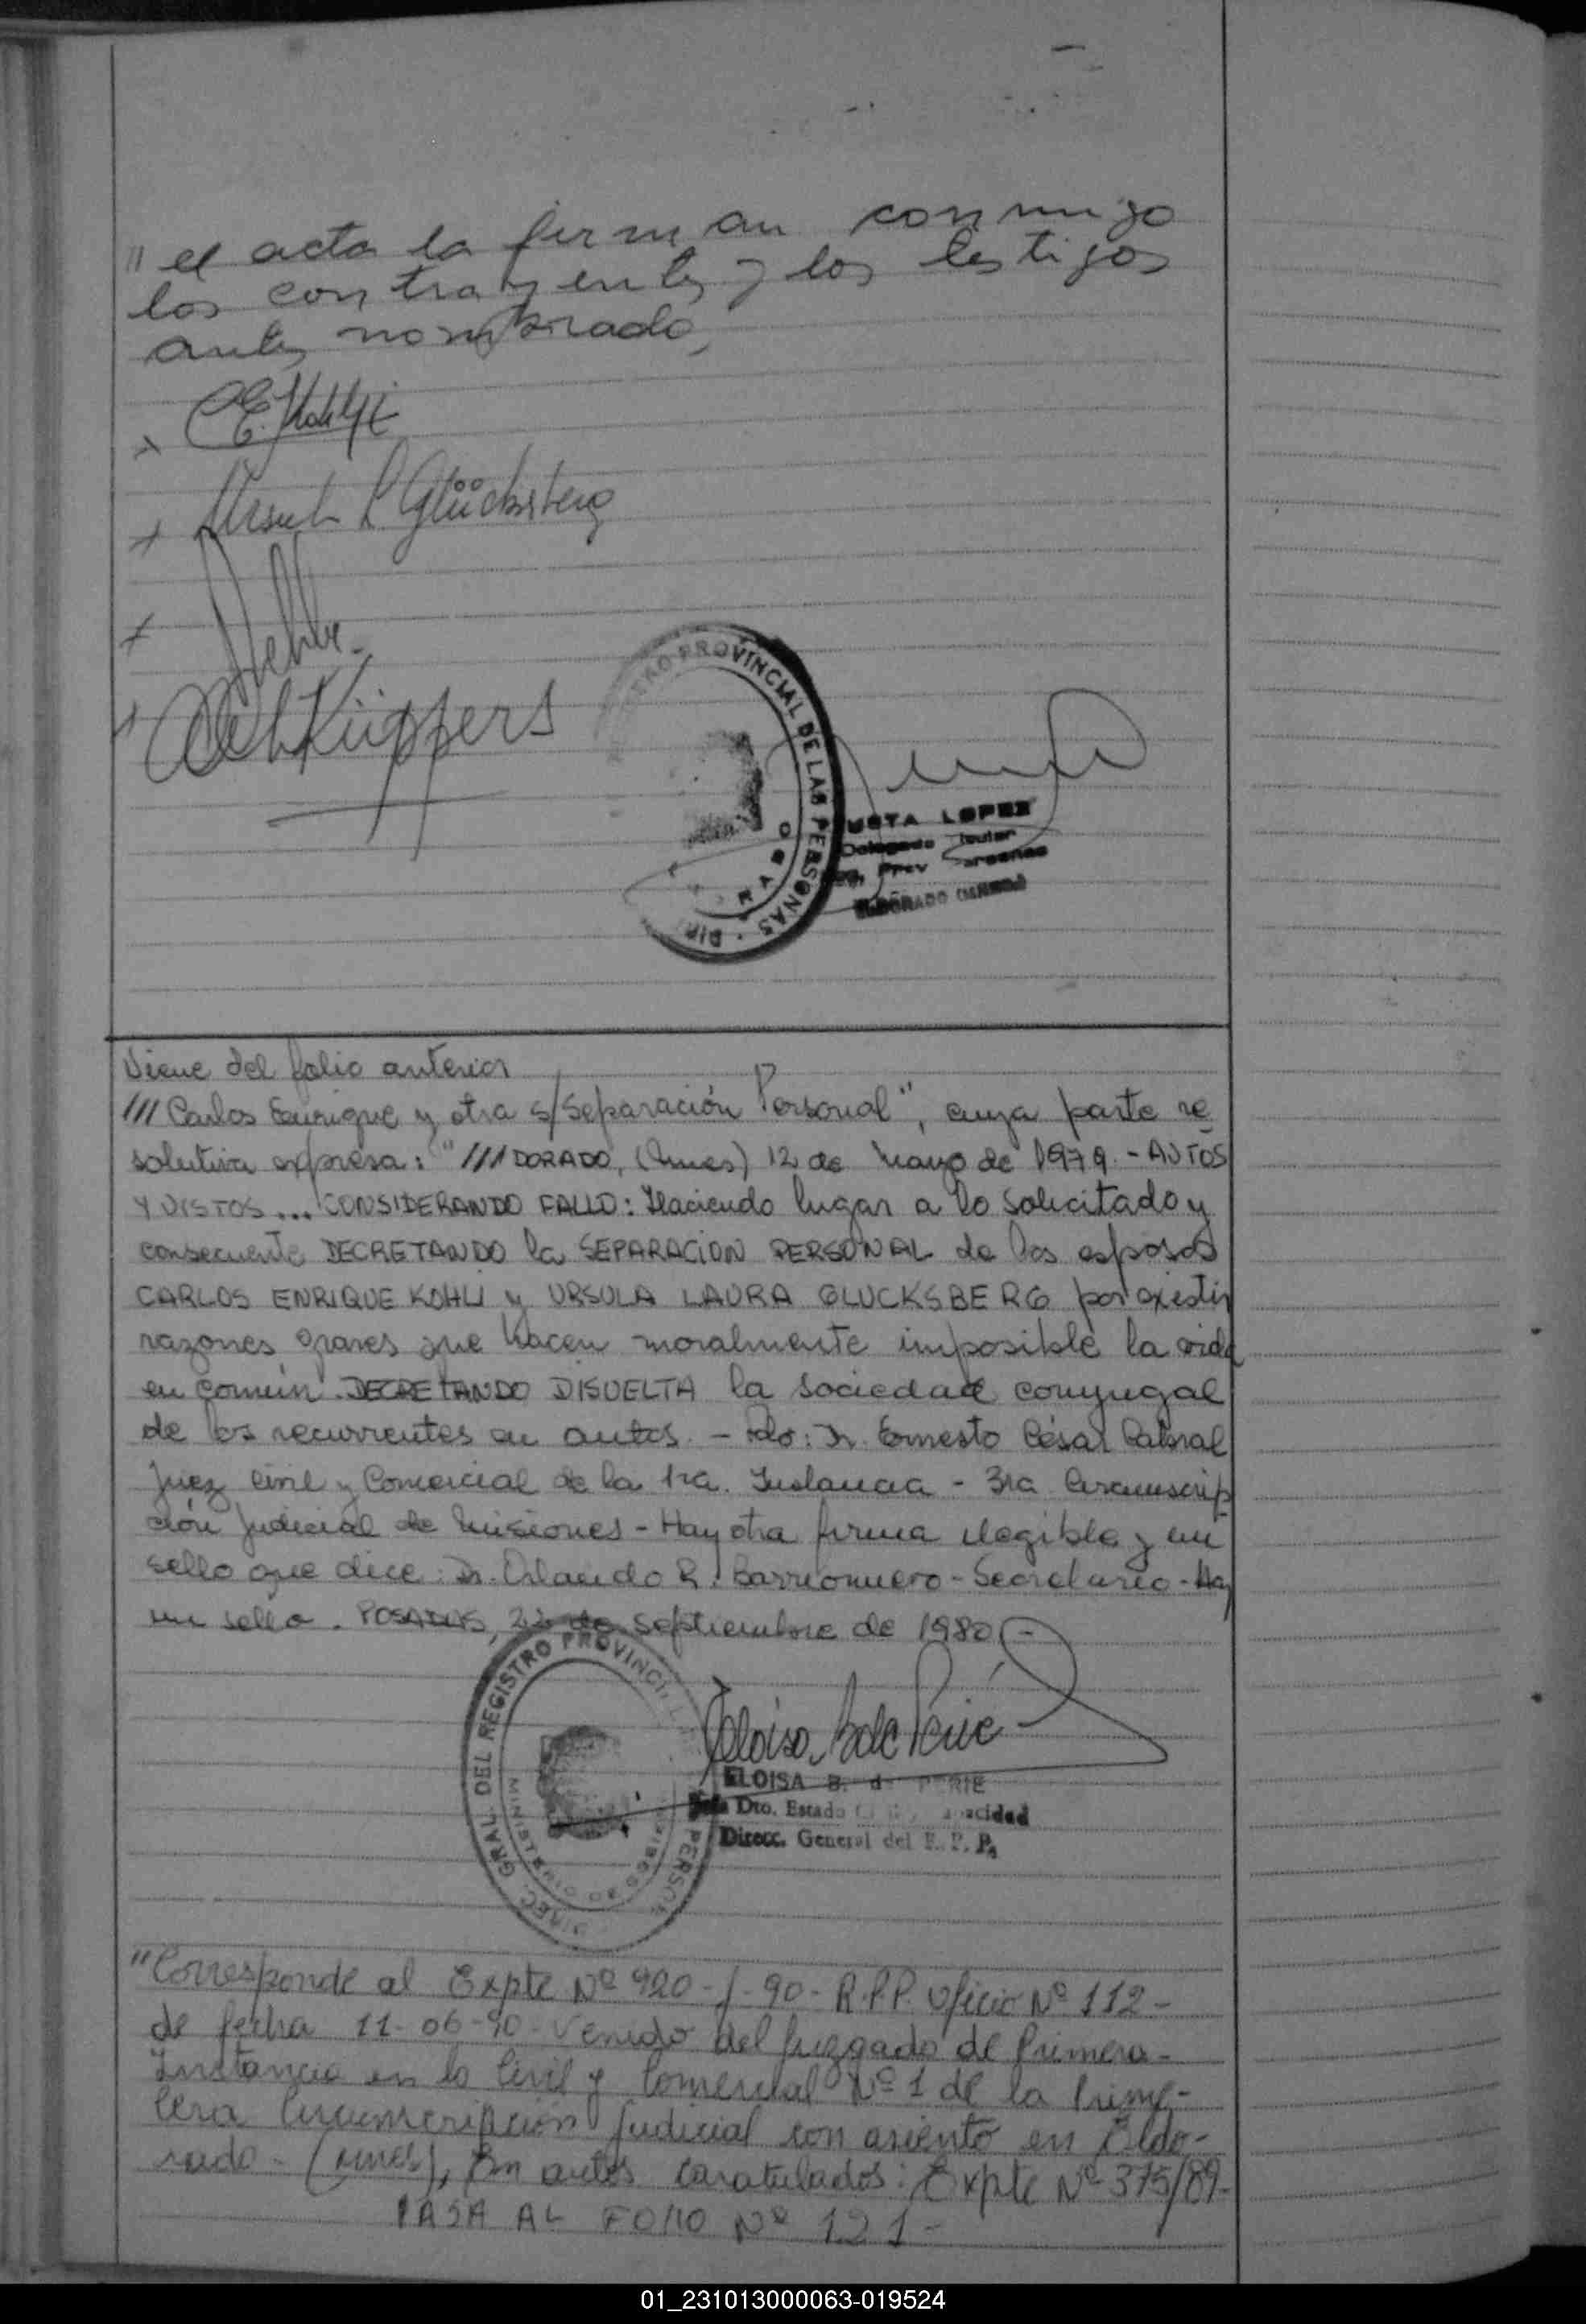 " el acta la firman conmigo
los contrayentes y los testigos
antes nombrado,
C E. Kohli
Ursula L Glücksberg
Küppers
REGISTRO PROVINCIAL DE LAS PERSONAS - DIR
LOPEZ
Viene del folio anterior
/// Carlos Enrique y otra s/Separación Personal", cuya parte re
solutiva expresa: "///DORADO, (Mnes) 12 de Mayo de 1979.- AUTOS
Y VISTOS... CONSIDERANDO FALLO: Haciendo lugar a lo solicitado y
consecuente DECRETANDO la SEPARACION PERSONAL de los esposos
CARLOS ENRIQUE KOHLI y URSULA LAURA GLUCKSBERG por existir
razones graves que hacen moralmente imposible la vida
en común. DECRETANDO DISUELTA la sociedad conyugal
de los recurrentes en autos. - Fdo: Dr. Ernesto César Cabral
Juez Civil y Comercial de la 1ra. Instancia - 3ra Circunscrip
ción Judicial de Misiones - Hay otra firma ilegible y un
sello que dice: Dr. Orlando R. Barrionuevo - Secretario - Hay
un sello. POSADAS, 22 de Septiembre de 1980.-
DIREC. GRAL. DEL REGISTRO PROVINCIAL PERSON
Eloisa B de Perié
ELOISA B. de PERIE
Jefa Dto. Estado Capacidad
Direcc. General del R. P. P.
"Corresponde al Expte Nº 920-J-90- R.P.P. Oficio Nº 112-
de fecha 11-06-90- Venido del Juzgado de Primera-
Instancia en lo Civil y Comercial Nº 1 de la
Circunscripción Judicial con asiento en Eldo-
rado- (Mnes), En autos caratulados: Expte Nº 375/89-
PASA AL FOLIO Nº 121-
01_231013000063-019524